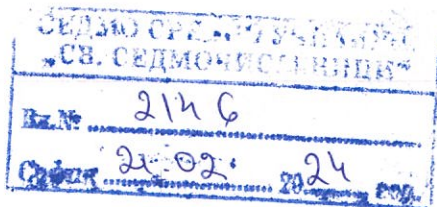 СЕДМО СРЕДНО УЧИЛИЩЕ
„СВ. СЕДМОЧИСЛЕНИЦИ“
Вх.№
София 21.02. 2024 год.